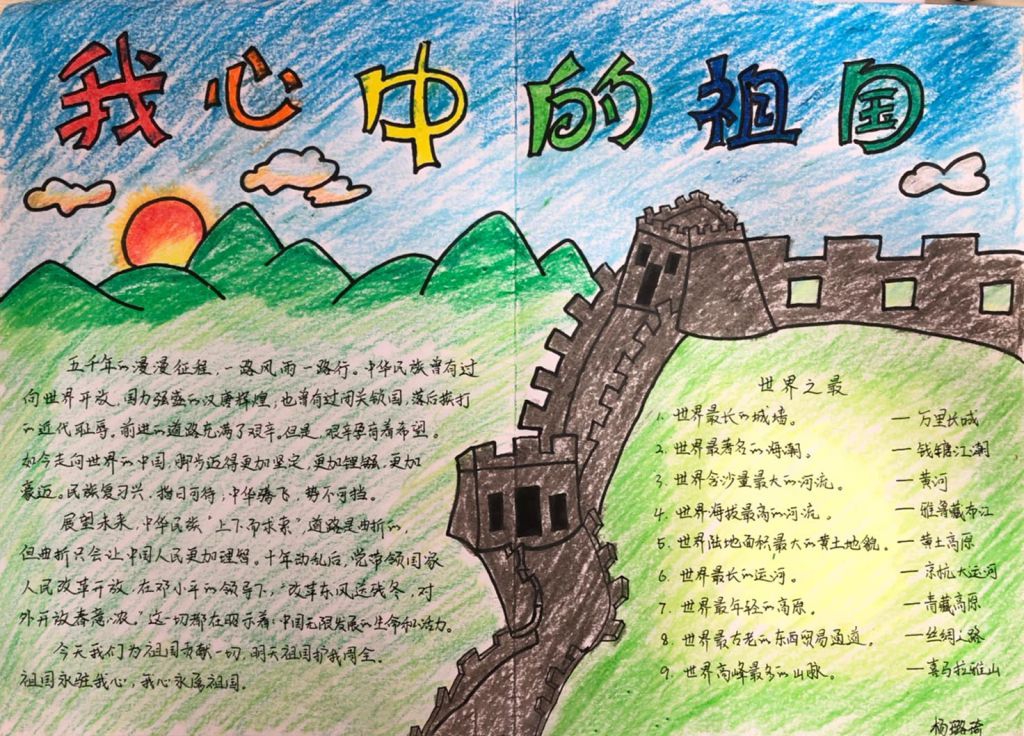 我心中的祖国
五千年的漫漫征程，一路风雨一路行。中华民族曾有过
向世界开放，国力强盛的汉唐辉煌，也曾有过闭关锁国，落后挨打
的近代耻辱。前进的道路充满了艰辛。但是，艰辛孕育着希望。
如今走向世界的中国，脚步迈得更加坚定，更加铿锵，更加
豪迈。民族复习兴，指日可待，中华腾飞，势不可挡。
展望未来，中华民族“上下而求索”道路是曲折的，
但曲折只会让中国人民更加理智。十年动乱后，党带领国家
人民改革开放，在邓小平的领导下，“改革东风送残冬，对
外开放春意浓。”这一切都在昭示着：中国无限发展的生命和活力。
今天我们为祖国贡献一切，明天祖国护我周全。
祖国永驻我心，我心永属祖国。
世界之最
1. 世界最长的城墙。 — 万里长城
2. 世界最著名的海潮。 — 钱塘江潮
3. 世界含沙量最大的河流。 — 黄河
4. 世界海拔最高的河流。 — 雅鲁藏布江
5. 世界陆地面积最大的黄土地貌。 — 黄土高原
6. 世界最长的运河。 — 京杭大运河
7. 世界最年轻的高原。 — 青藏高原
8. 世界最古老的东西贸易通道。 — 丝绸之路
9. 世界高峰最多的山脉。 — 喜马拉雅山
杨璐琦